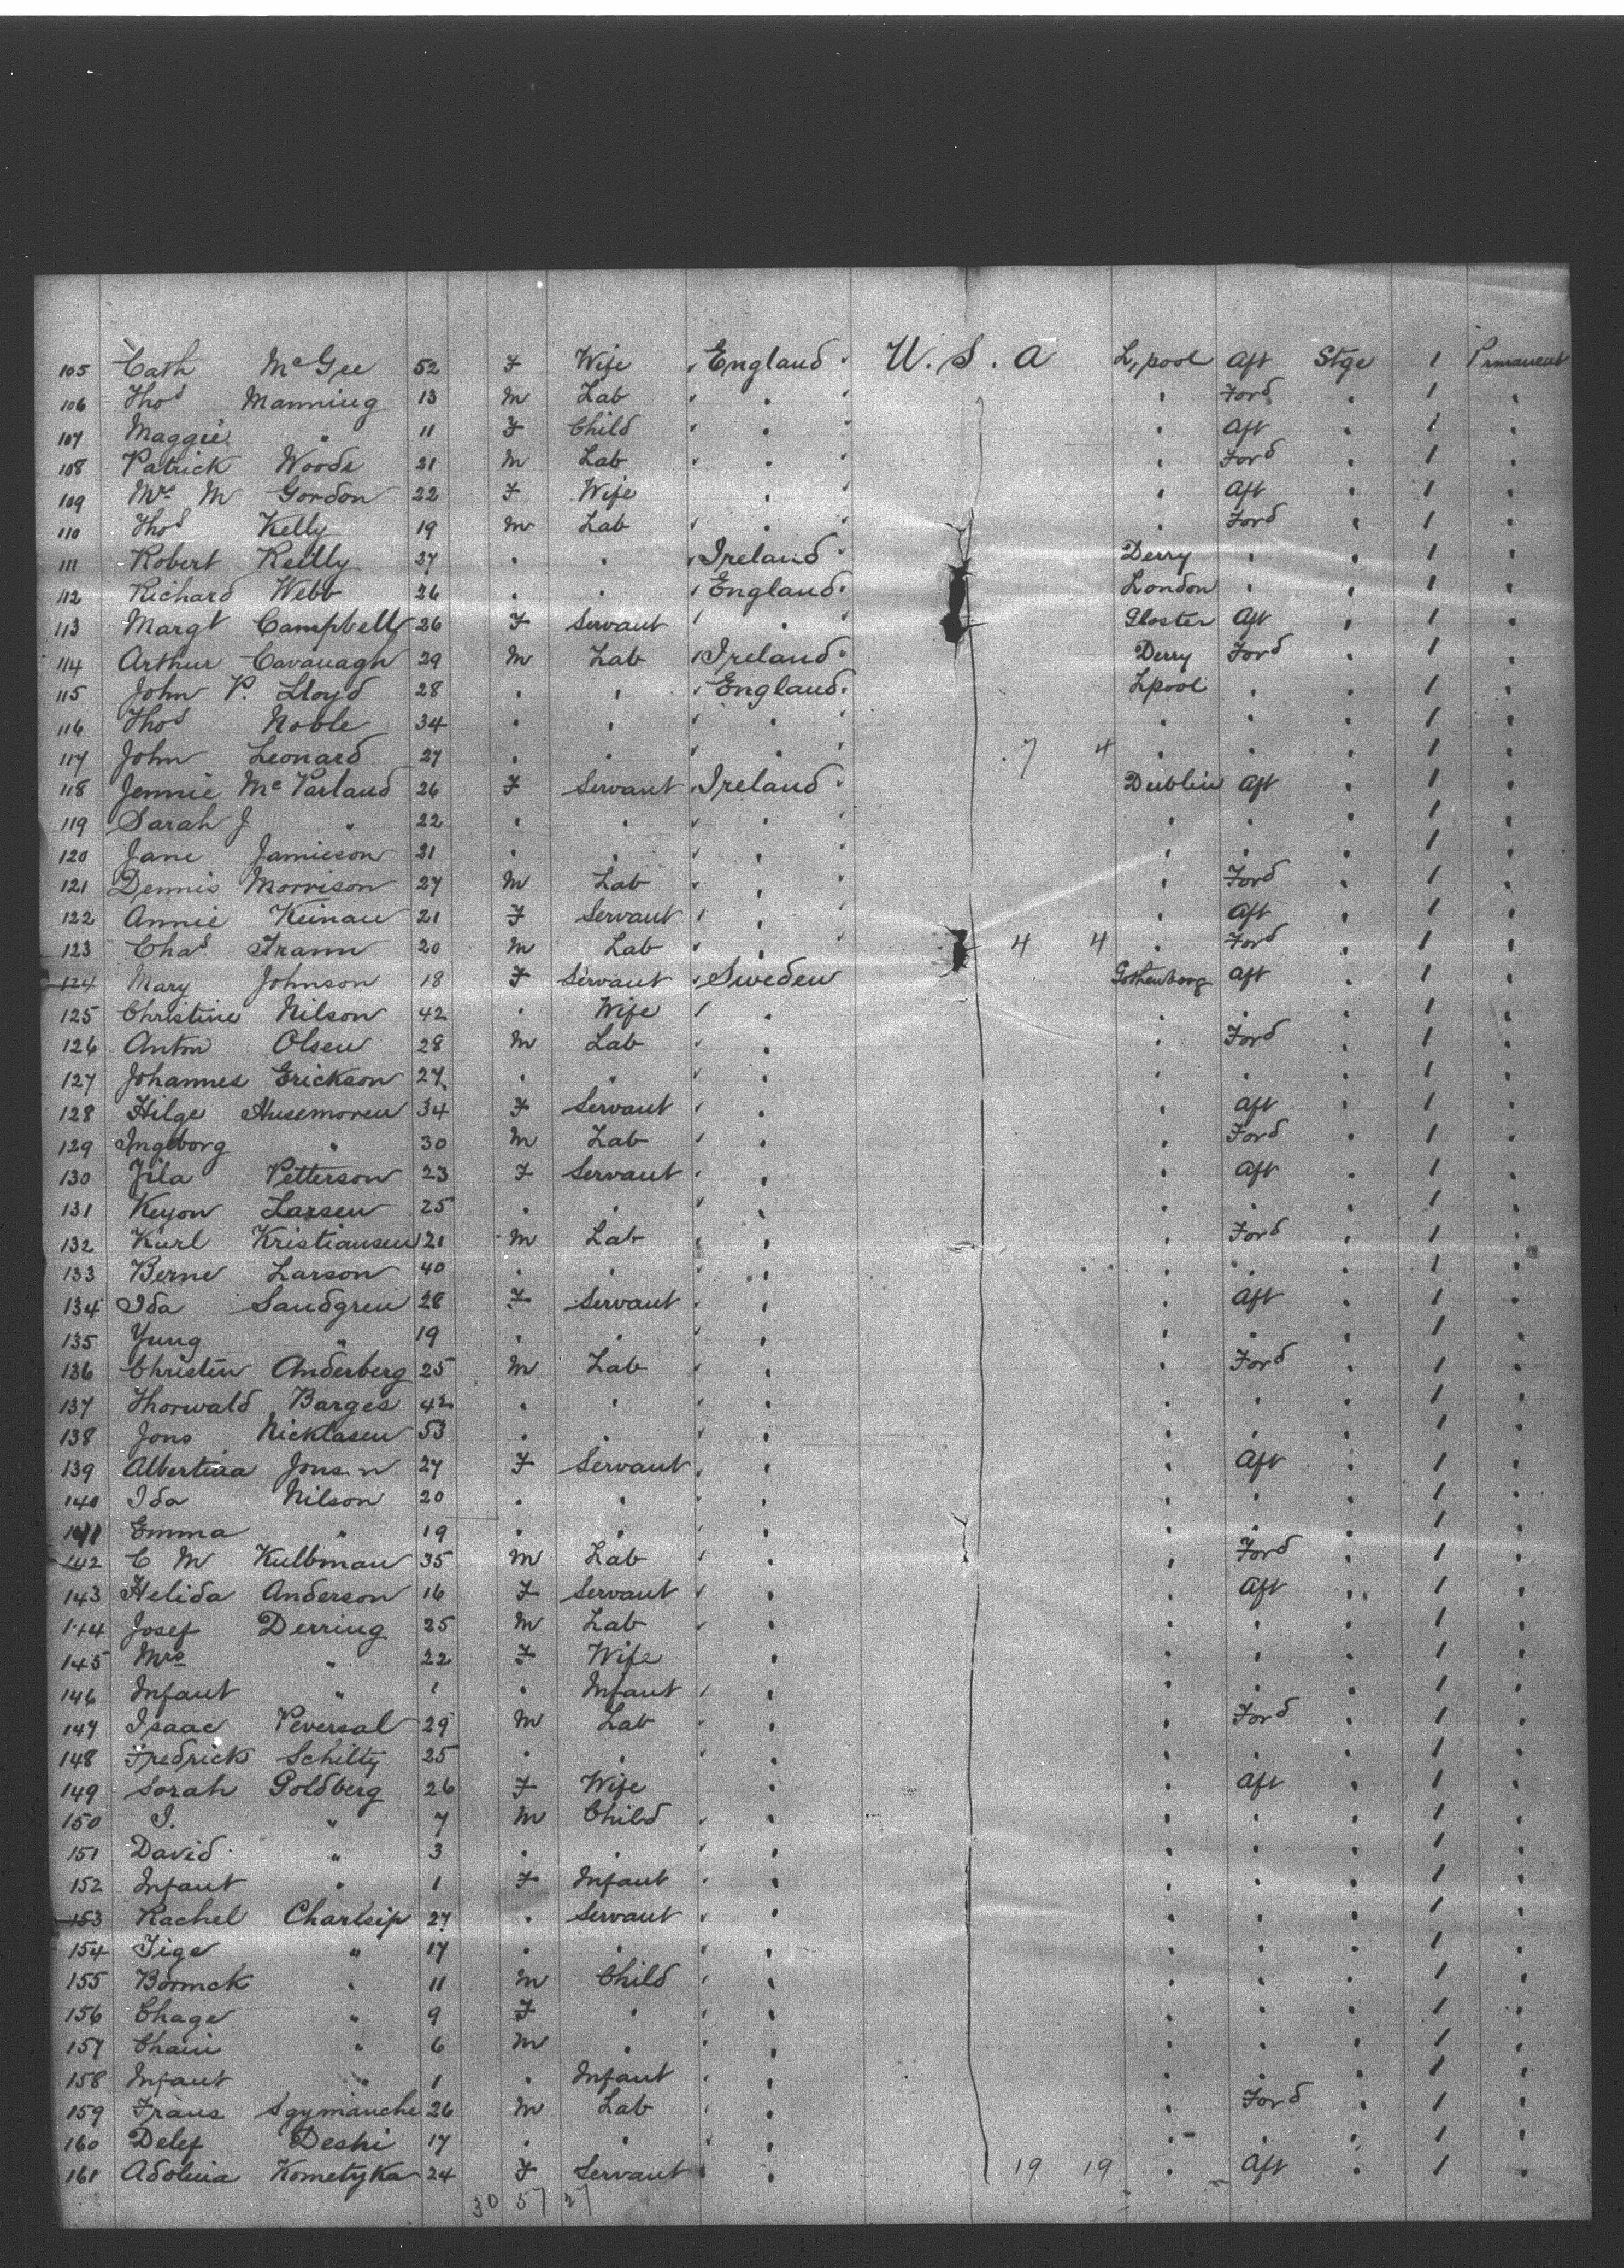 105 Cath McGee 52 F Wife England U.S.A L,pool Aft Stge 1 Prmanent
106 Thos Manning 13 M Lab " " " Ford " 1 "
107 Maggie " 11 F Child " " " Aft " 1 "
108 Patrick Woods 21 M Lab " " " Ford " 1 "
109 Mrs M Gordon 22 F Wife " " Aft " 1 "
110 Thos Kelly 19 M Lab " " " Ford " 1 "
111 Robert Reilly 27 " " Ireland Derry " " 1 "
112 Richard Webb 26 " " England London " " 1 "
113 Margt Campbell 26 F Servant " " Gloster Aft " 1 "
114 Arthur Cavanagh 29 M Lab Ireland Derry Ford " 1 "
115 John P. Lloyd 28 " " England Lpool " " 1 "
116 Thos Noble 34 " " " " " " " 1 "
117 John Leonard 27 " " " " 7 4 " " " 1 "
118 Jennie McParland 26 F Servant Ireland Dublin Aft " 1 "
119 Sarah J " 22 " " " " " " " 1 "
120 Jane Jamieson 21 " " " " " " " 1 "
121 Dennis Morrison 27 M Lab " " " Ford " 1 "
122 Annie Keinan 21 F Servant " " " Aft " 1 "
123 Chas Frann 20 M Lab " " 4 4 " Ford " 1 "
124 Mary Johnson 18 F Servant Sweden Gothenborg Aft " 1 "
125 Christine Nilson 42 " Wife " " " " " 1 "
126 Anton Olsen 28 M Lab " " " Ford " 1 "
127 Johannes Erickson 27 " " " " " " " 1 "
128 Hilge 34 F Servant " " " Aft " 1 "
129 Ingeborg " 30 M Lab " " " Ford " 1 "
130 Petterson 23 F Servant " " " Aft " 1 "
131 Keyon Larsen 25 " " " " " " " 1 "
132 Kurl Kristiansen 21 M Lab " " " Ford " 1 "
133 Berne Larson 40 " " " " " " " 1 "
134 Ida Sandgren 28 F Servant " " " Aft " 1 "
135 Yung " 19 " " " " " " " 1 "
136 Christin Anderberg 25 M Lab " " " Ford " 1 "
137 Thorwald Barges 42 " " " " " " " 1 "
138 Jons Nicklasen 53 " " " " " " " 1 "
139 Albertina Jonsen 27 F Servant " " " Aft " 1 "
140 Ida Nilson 20 " " " " " " " 1 "
141 Emma " 19 " " " " " " " 1 "
142 C M Kullman 35 M Lab " " " Ford " 1 "
143 Helida Anderson 16 F Servant " " " Aft " 1 "
144 Josef Derring 25 M Lab " " " " " 1 "
145 Mrs " 22 F Wife " " " " 1 "
146 Infant " 1 " Infant " " " " " 1 "
147 Isaac Peversal 29 M Lab " " " Ford " 1 "
148 Fredrick Schilty 25 " " " " " " " 1 "
149 Sorah Goldberg 26 F Wife " " Aft " 1 "
150 I. " 7 M Child " " " " " 1 "
151 David " 3 " " " " " " " 1 "
152 Infant " 1 F Infant " " " " " 1 "
153 Rachel Charlsip 27 " Servant " " " " " 1 "
154 Tige " 17 " " " " " " " 1 "
155 " 11 M Child " " " " " 1 "
156 Chage " 9 F " " " " " " 1 "
157 " 6 M " " " " " " 1 "
158 Infant " 1 " Infant " " " " " 1 "
159 Frans Sgymanche 26 M Lab " " " Ford " 1 "
160 Delef Deshi 17 " " " " " " " 1 "
161 Kometyka 24 F Servant " " 19 19 " Aft " 1 "
30 57 27